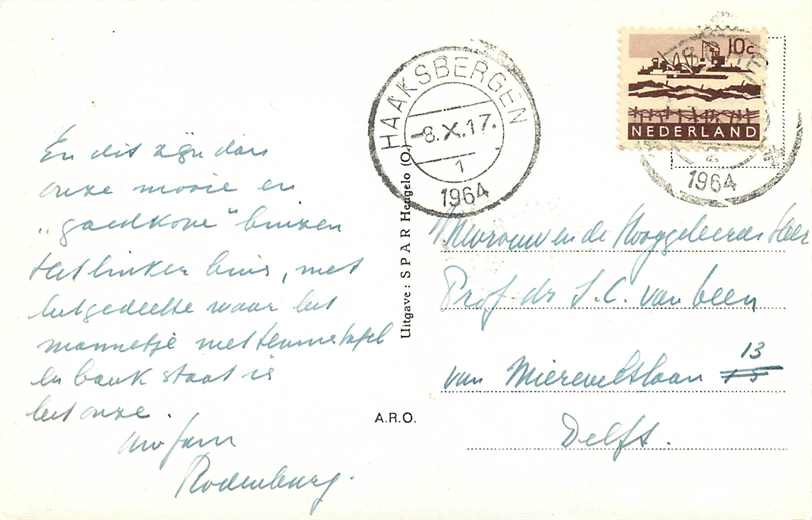 En dit zijn dan
onze mooie en
„goedkope" huizen
Het linker huis, met
het gedeelte waar het
mannetje met tennistafel
en bank staat is
het onze.
Uw fam
Rodenburg.
Uitgave: SPAR Hengelo (O.)
A.R.O.
HAAKSBERGEN
-8.X.17.
1
1964
10c
NEDERLAND
1964
Mevrouw en de Hooggeleerde Heer
Prof. dr. J. C. van Veen
van Miereveltlaan 13
Delft.